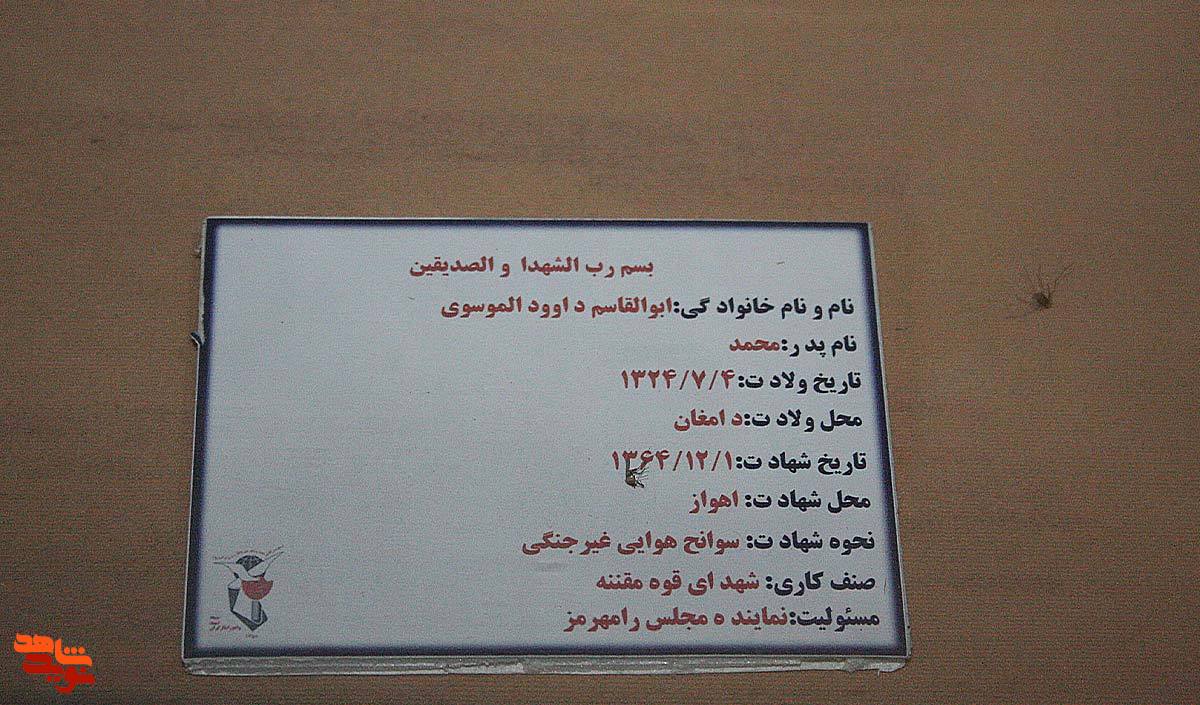 بسم رب الشهدا و الصديقين
نام و نام خانواد گی:ابوالقاسم د اوود الموسوی
نام پد ر:محمد
تاریخ ولاد ت:۱۳۲۴/۷/۴
محل ولاد ت:د امغان
تاریخ شهاد ت:۱۳۶۴/۱۲/۱
محل شهاد ت: اهواز
نحوه شهاد ت: سوانح هوایی غیرجنگی
صنف کاری: شهد ای قوه مقننه
مسئولیت:نمایند ه مجلس رامهرمز
نوید شاهد